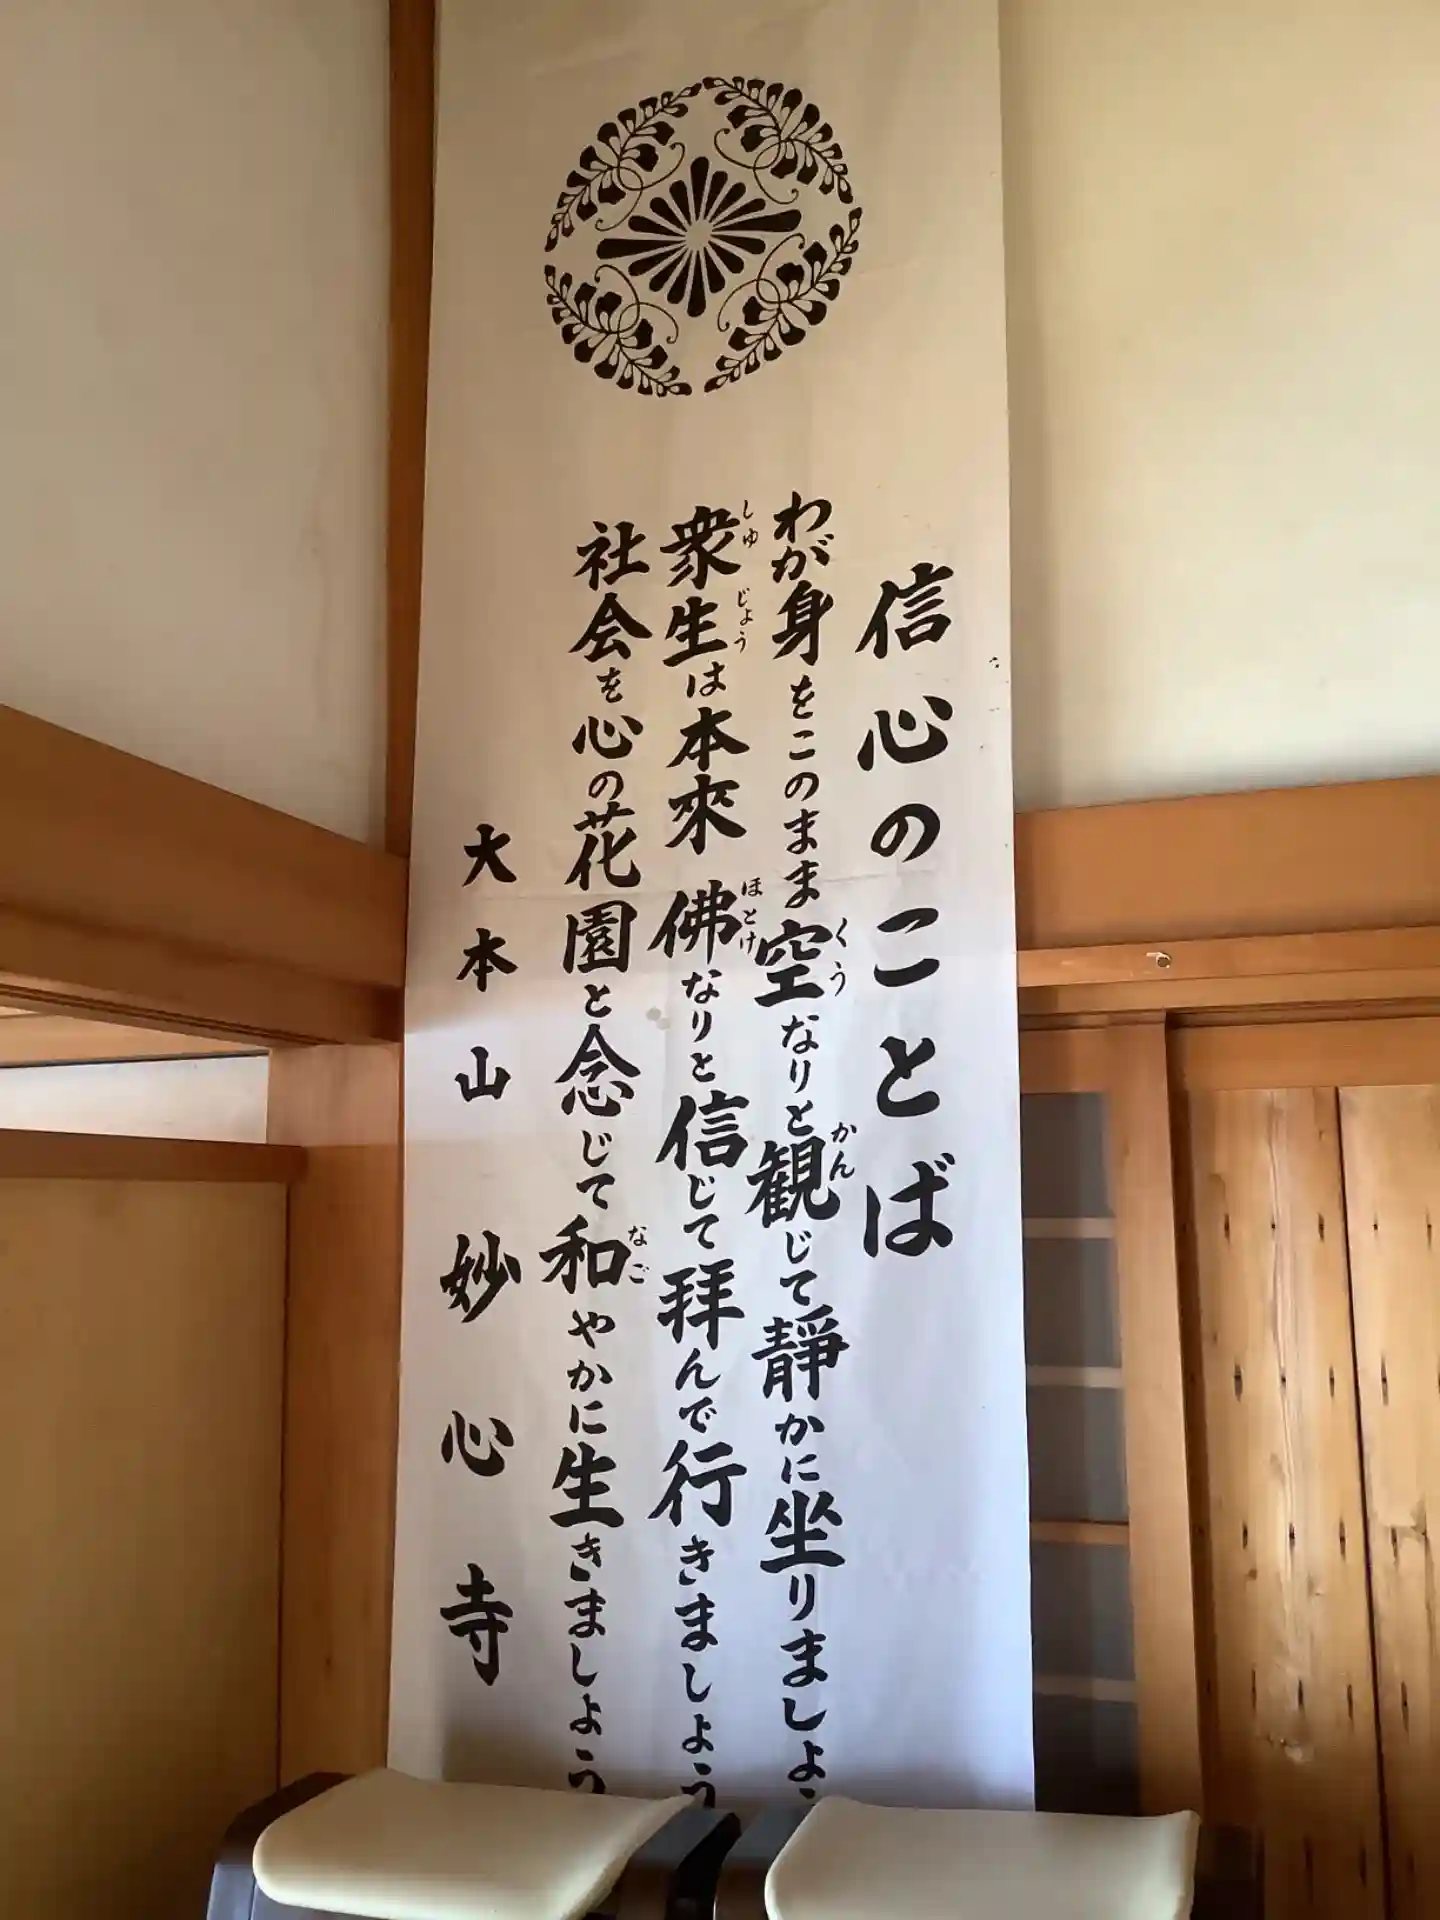 信心のことば
わが身をこのまま空なりと観じて静かに坐りましょう
くう
かん
衆生は本來佛なりと信じて拝んで行きましょう
しゅじょう
ほとけ
社会を心の花園と念じて和やかに生きましょう
なご
大本山 妙心寺